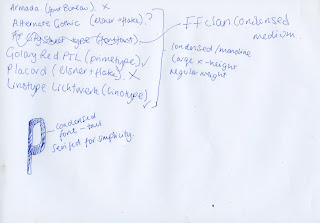 Armada (font Bureau). X
Alternate Gothic (elsner+flake)?
type (fontfont)
Golary Red PTL (primetype) ✓
Placard (elsner+flake) X
Linotype Lichtwerk (linotype) ✓
FF clan condensed
medium.
condensed / monoline
large x-height
regular weight
condensed
font - tall
Serifed for simplicity.